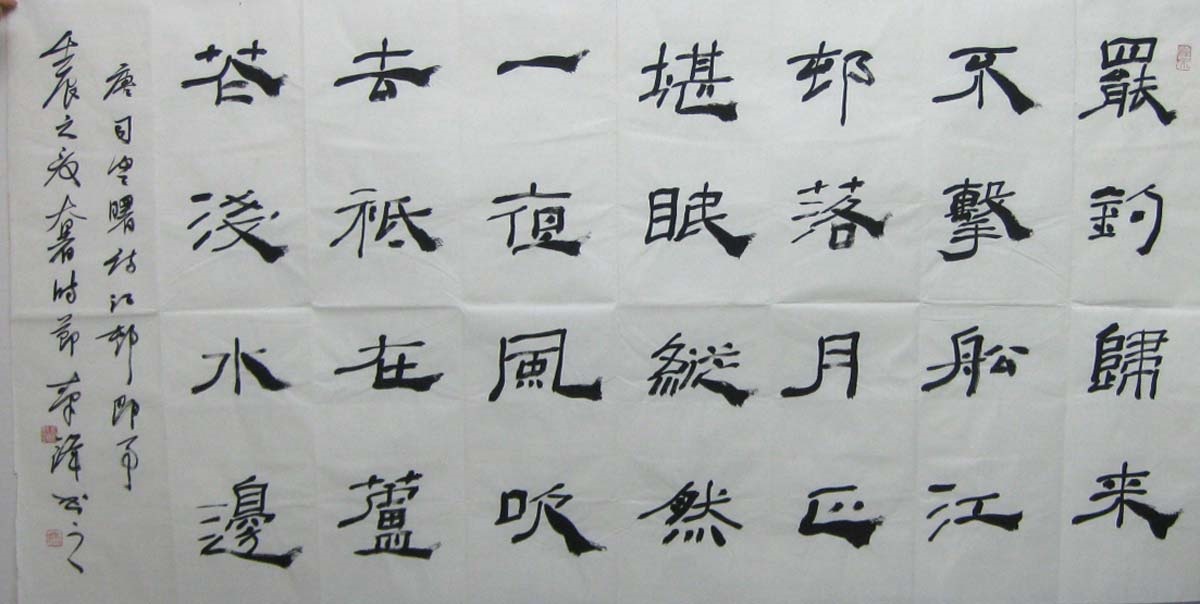 罷釣歸来
不擊舩江
邨落月正
堪眠縱然
一夜風吹
去祗在蘆
花淺水邊
唐司空曙詩江邨即事
壬辰之夏大暑時節書之